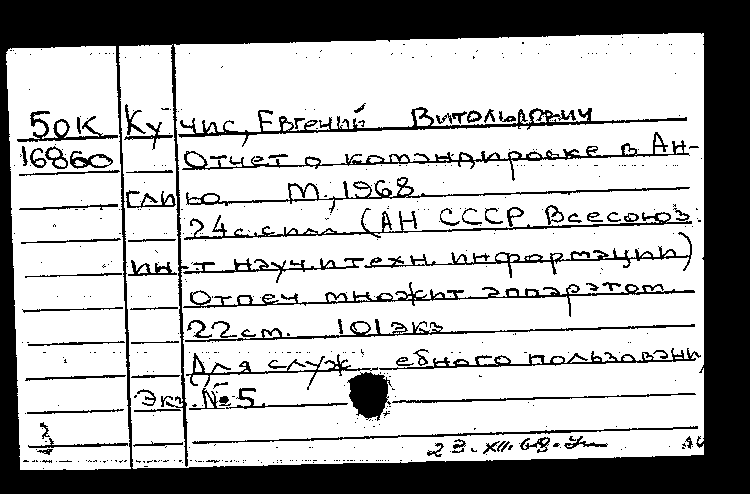 50К Кучис, Евгений Витольдович
16860 Отчет о командировке в Ан-
глию. М., 1968.
24 с. илл. (АН СССР. Всесоюз.
ин-т науч. и техн. информации)
Отпеч. множит. аппаратом.
22 см. 101 экз
Для служебного пользовани
Экз. № 5.
23.XII.68.